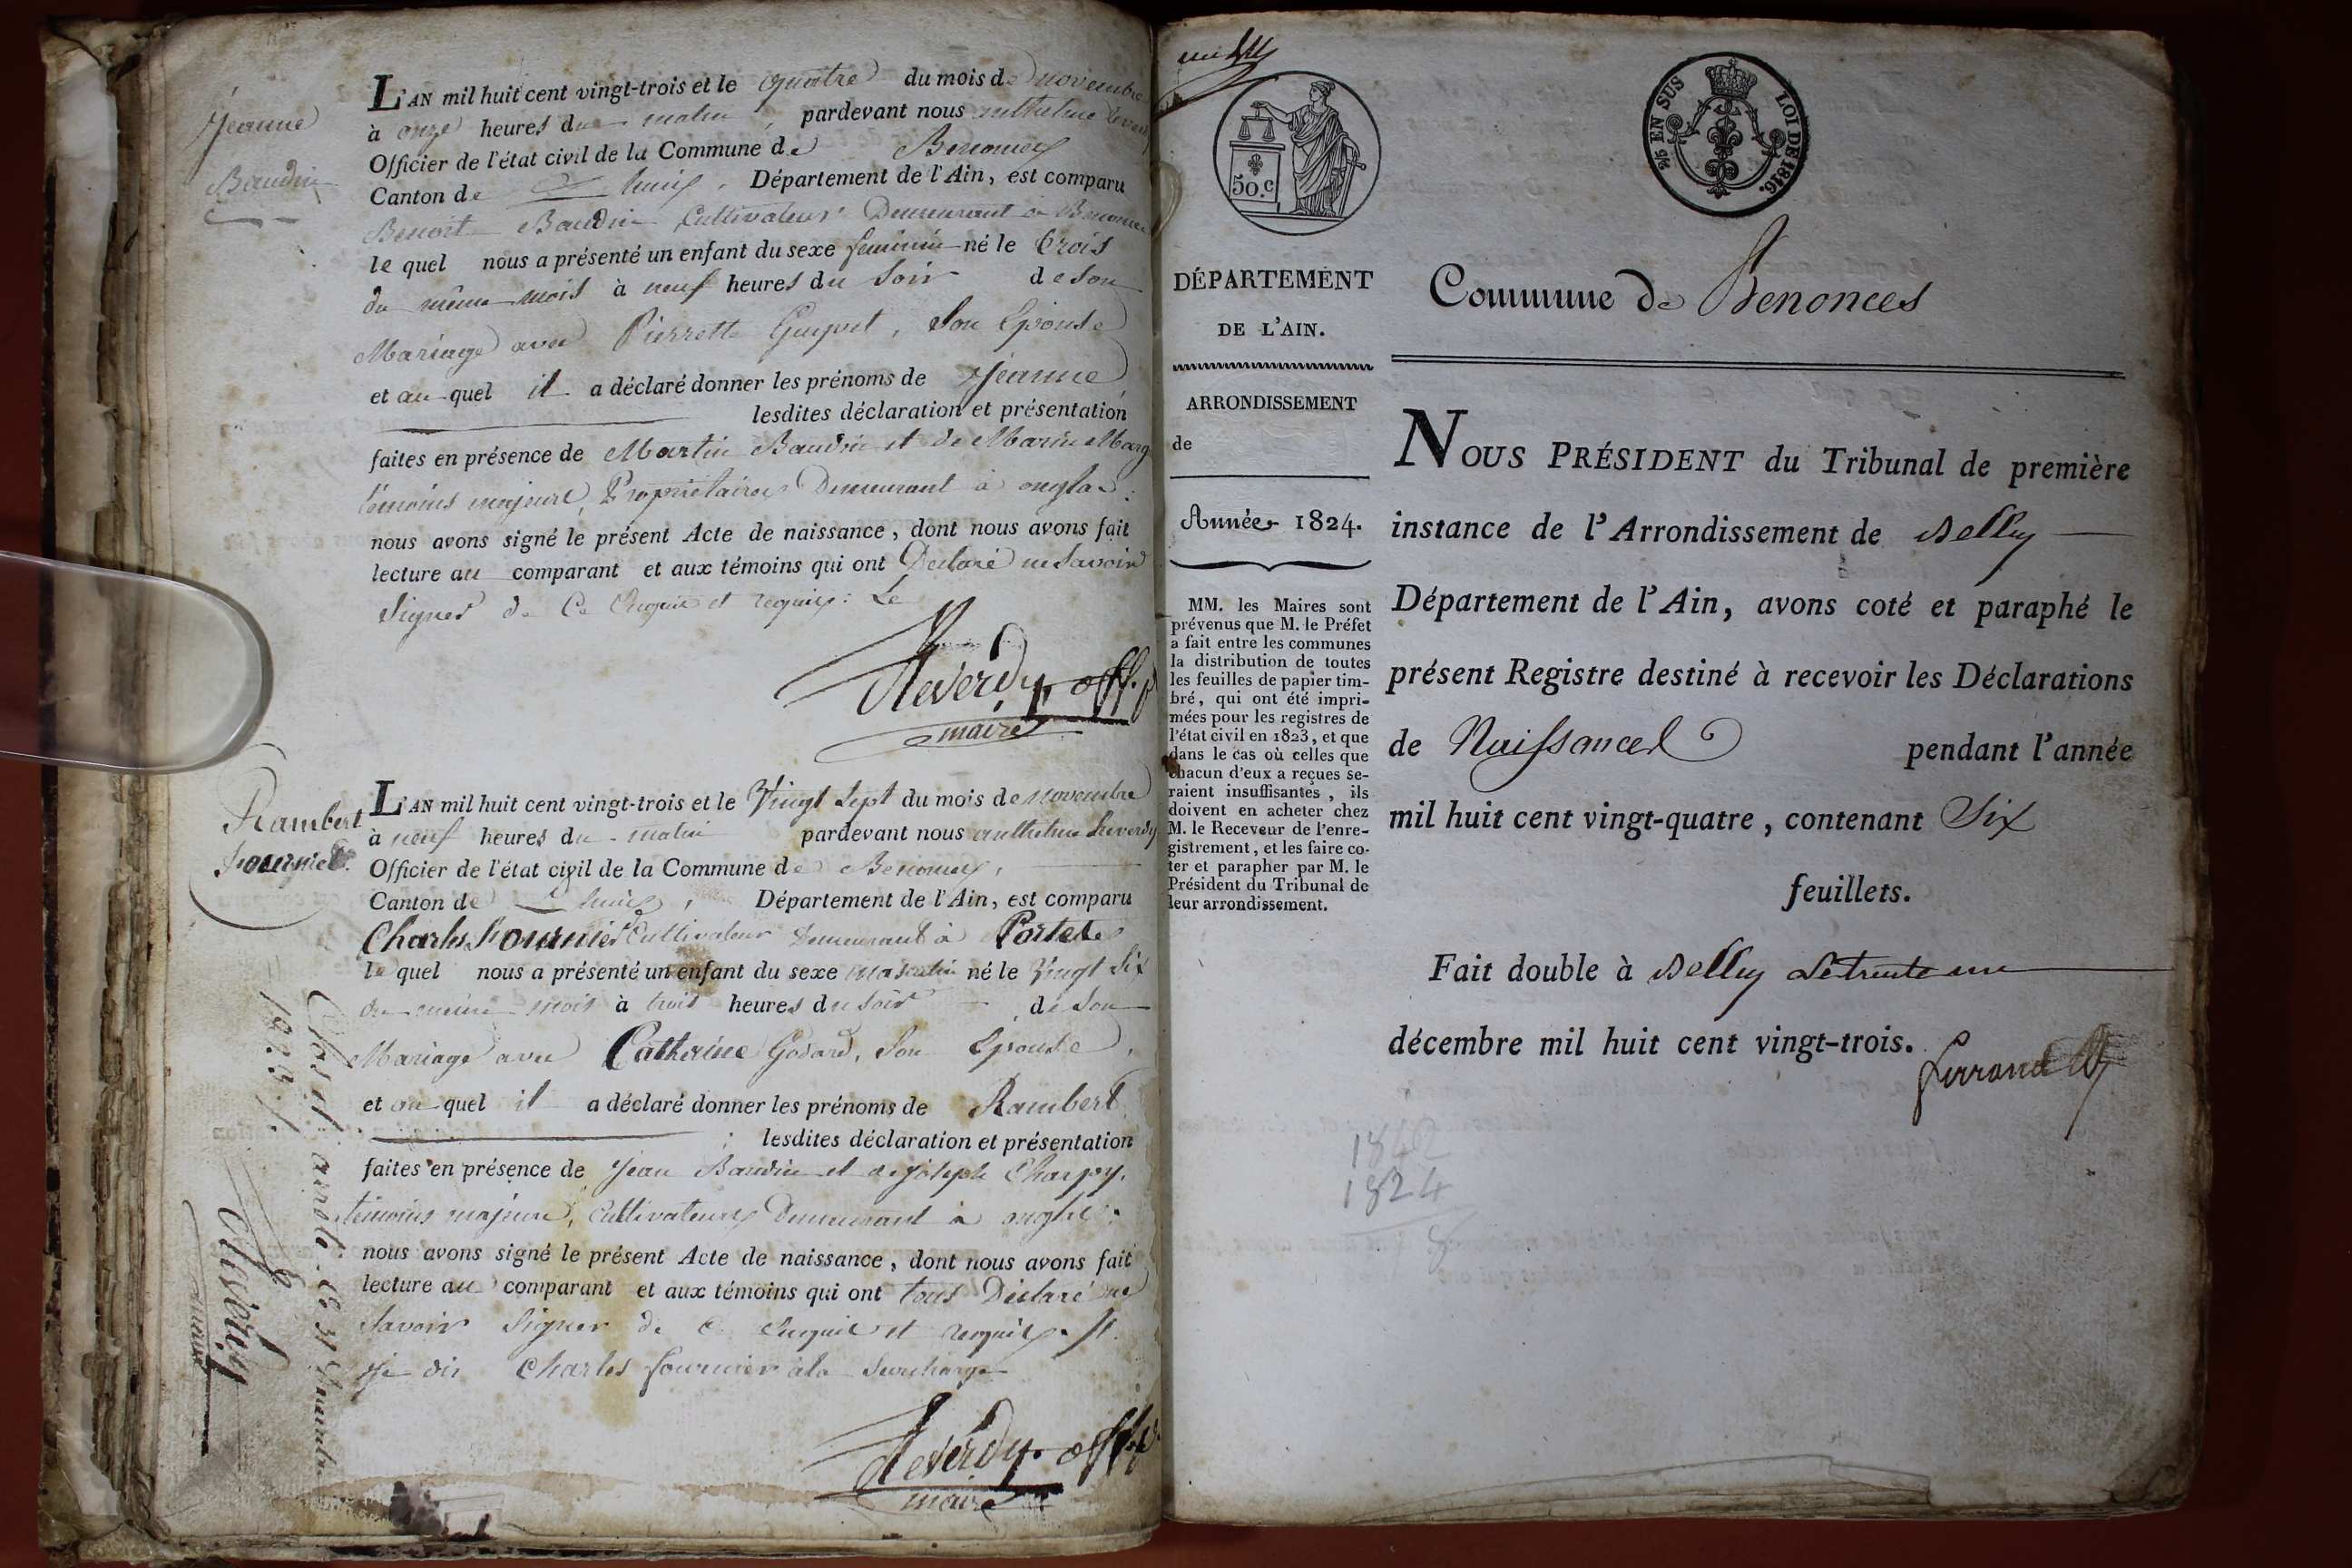 Jeanne
Baudin
L'AN mil huit cent vingt-trois et le quatre du mois de novembre
à onze heures du matin, pardevant nous anthelme
Officier de l'état civil de la Commune de Benonces
Canton de Département de l'Ain, est comparu
Benoit Baudin Cultivateur Demeurant à Benonces
le quel nous a présenté un enfant du sexe feminin né le trois
du même mois à neuf heures du soir de son
Mariage avec Pierrette Guyvet, son Epouse
et au quel il a déclaré donner les prénoms de Jeanne
lesdites déclaration et présentation
faites en présence de Martin Baudin et de Marin
témoins majeurs, Propriétaires Demeurant à onglas;
nous avons signé le présent Acte de naissance, dont nous avons fait
lecture au comparant et aux témoins qui ont Declaré ne Savoir
Signer de Ce Enquis et requis. Le
Reverdy, off.
maire
Rambert
fournier.
L'AN mil huit cent vingt-trois et le Vingt Sept du mois de novembre
à neuf heures du matin pardevant nous anthelme Reverdy
Officier de l'état civil de la Commune de Benonces,
Canton de Département de l'Ain, est comparu
Charles Fournier Cultivateur Demeurant à Portet
le quel nous a présenté un enfant du sexe masculin né le Vingt Six
du même mois à trois heures du soir de son
Mariage avec Catherine Godard, Son Epouse,
et au quel il a déclaré donner les prénoms de Rambert
; lesdites déclaration et présentation
faites en présence de Jean Baudin et de joseph Charpy,
témoins majeurs, Cultivateurs Demeurant à onglas;
nous avons signé le présent Acte de naissance, dont nous avons fait
lecture au comparant et aux témoins qui ont tous Déclaré ne
Savoir Signer de Ce Enquis et requis.
Je dis Charles fournier à la Surcharge
Reverdy. off.
maire
Clos et arreté le 31 Décembre
1823.
Reverdy
maire
50.c
25 EN SUS
LOI DE 1816.
DÉPARTEMENT
DE L'AIN.
ARRONDISSEMENT
de
Année 1824.
MM. les Maires sont
prévenus que M. le Préfet
a fait entre les communes
la distribution de toutes
les feuilles de papier tim-
bré, qui ont été impri-
mées pour les registres de
l'état civil en 1823, et que
dans le cas où celles que
chacun d'eux a reçues se-
raient insuffisantes, ils
doivent en acheter chez
M. le Receveur de l'enre-
gistrement, et les faire co-
ter et parapher par M. le
Président du Tribunal de
leur arrondissement.
Commune de Benonces
NOUS PRÉSIDENT du Tribunal de première
instance de l'Arrondissement de Belley
Département de l'Ain, avons coté et paraphé le
présent Registre destiné à recevoir les Déclarations
de Naissances pendant l'année
mil huit cent vingt-quatre, contenant Six
feuillets.
Fait double à Belley Le trente un
décembre mil huit cent vingt-trois.
Ferrand
1842
1824
8